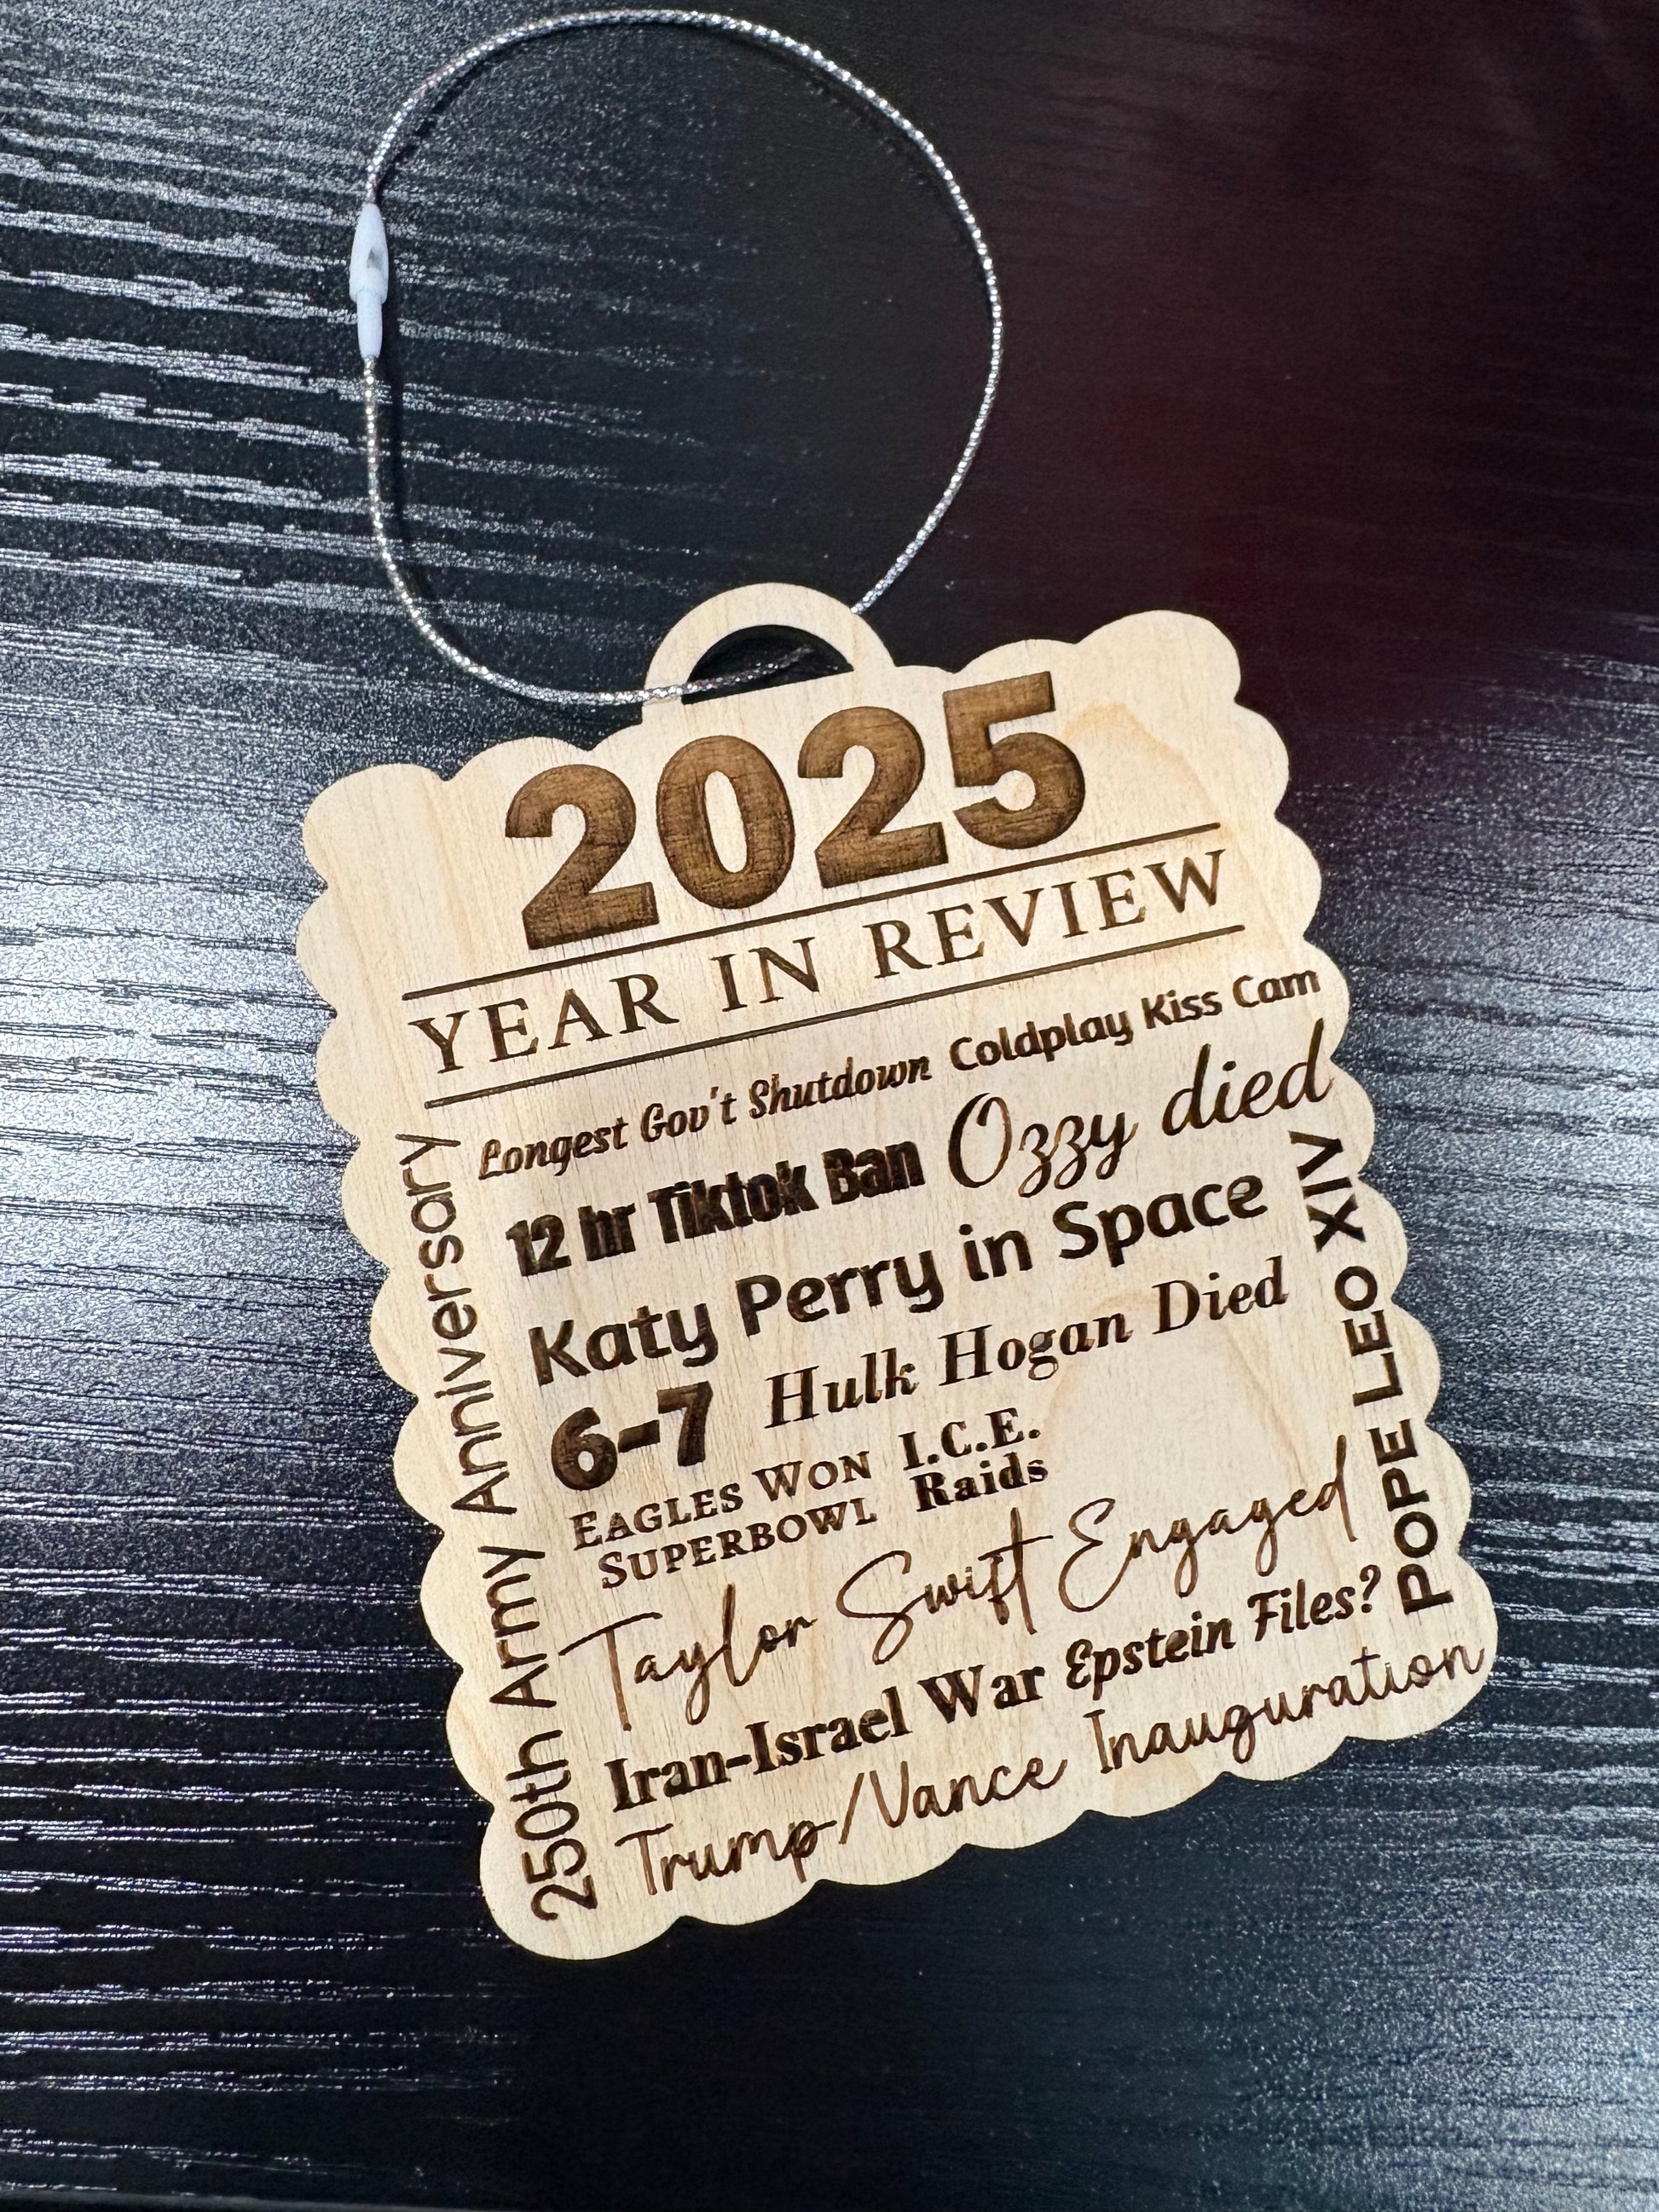 2025
YEAR IN REVIEW
Longest Gov't Shutdown Coldplay Kiss Cam
12 hr Tiktok Ban Ozzy died
Katy Perry in Space
6-7 Hulk Hogan Died
EAGLES WON
SUPERBOWL
I.C.E.
Raids
Taylor Swift Engaged
Iran-Israel War Epstein Files?
Trump/Vance Inauguration
250th Army Anniversary
POPE LEO XIV